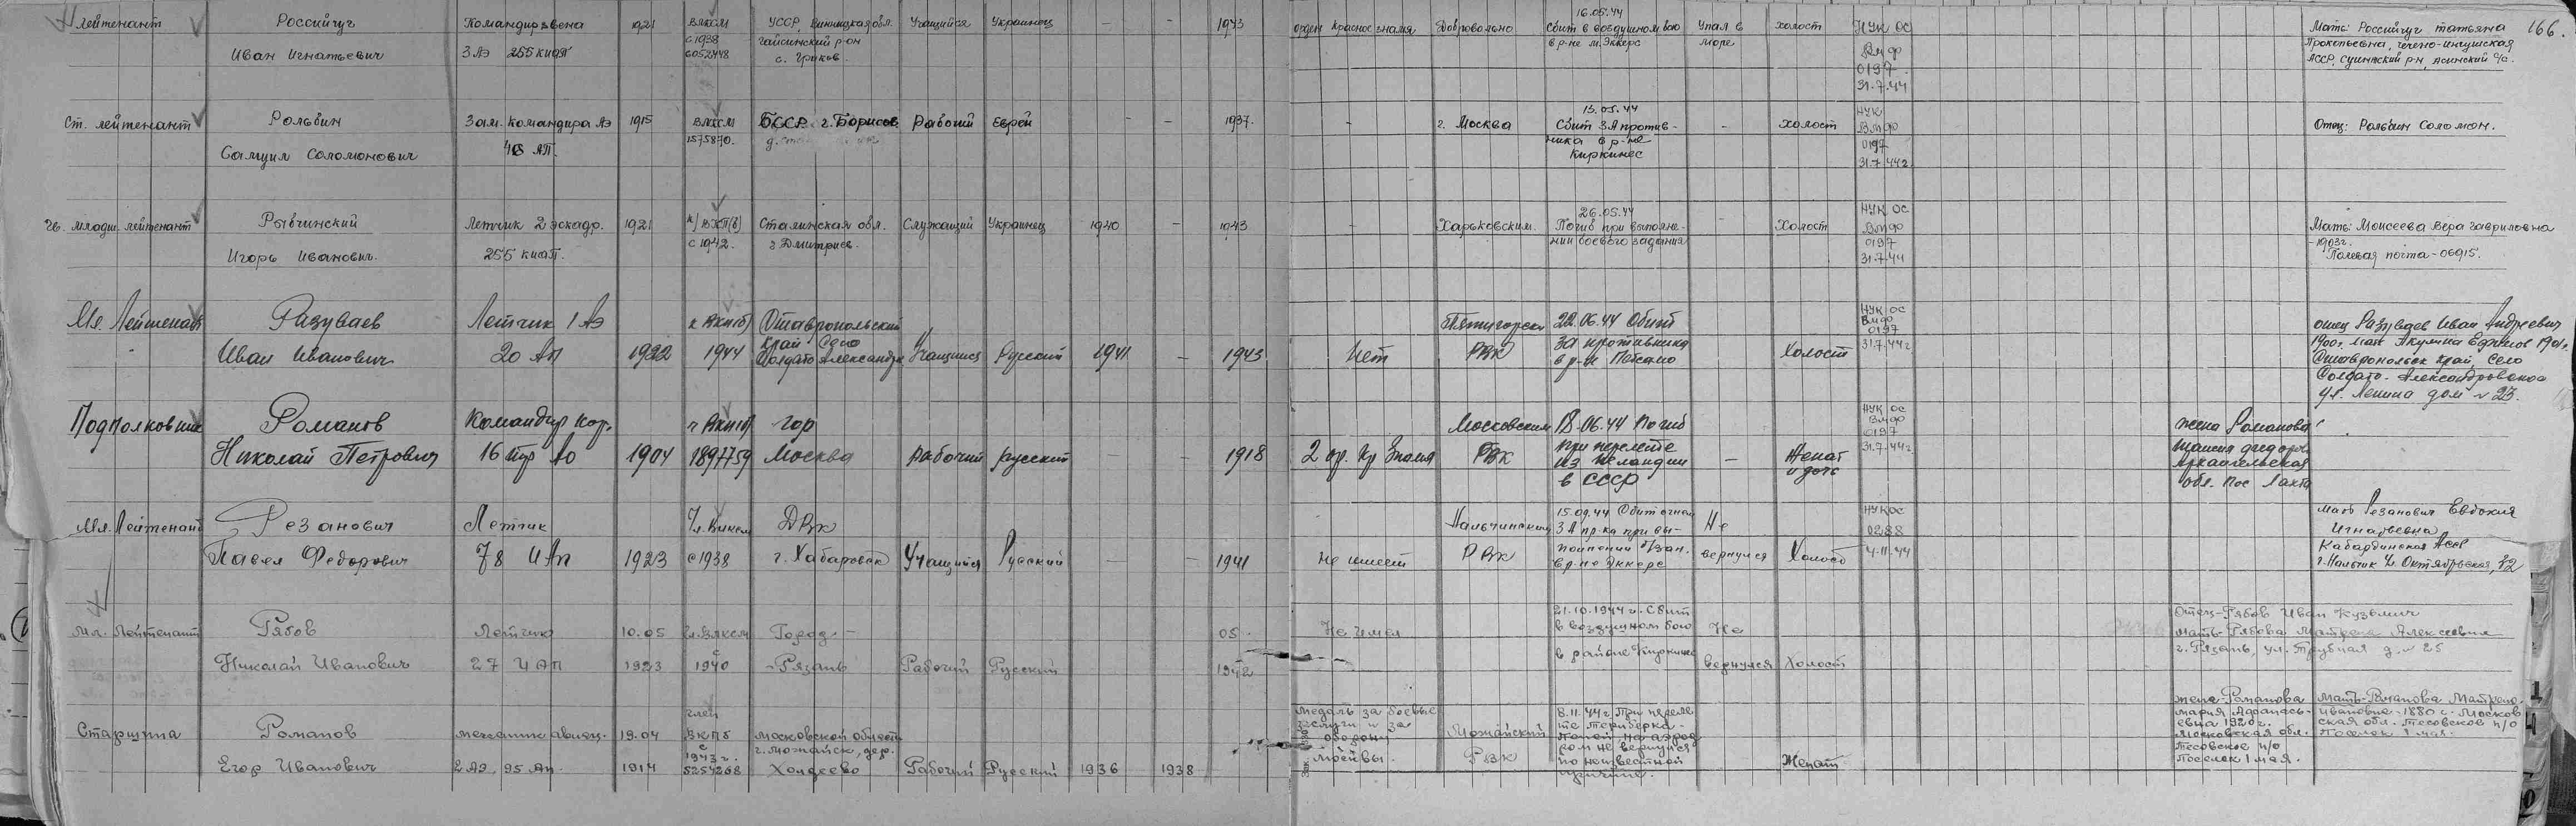 лейтенант Российчуг Командир звена 1921 ВЛКСМ УССР, Винницкая обл. Учащийся Украинец — — 1943 орден Красное знамя Добровольно 16.05.44 Сбит в воздушном бою Упал в холост НУК ОС Мать: Российчуг Татьяна 166.
Иван Игнатьевич 3 АЭ 255 КИАП с 1938 6052448 гайсинский р-он с. в р-не м. Эккерс море ВМФ 0197 31.7.44 Прокопьевна, Чечено-ингушская АССР, р-н, с/с.
Ст. лейтенант Рольбин Зам. командира АЭ 1915 ВЛКСМ БССР г. Борисов Рабочий Еврей — — 1937 — г. Москва 13.05.44 Сбит ЗА против- — холост НУК ВМФ Отец: Рольбин Соломон.
Самуил Соломонович АП. 1575870. ника в р-не Киркинес 0197 31.7.44г
Гв. младш. лейтенант Рывчинский Летчик 2 эскадр. 1921 к/ВКП(б) Сталинская обл. Служащий Украинец 1940 — 1943 — Харьковским. 26.05.44 Погиб при выполне- — Холост НУК ОС ВМФ Мать: Моисеева Вера Гавриловна
Игорь Иванович. 255 КИАП. с 1942. г. Дмитриев. нии боевого задания 0197 31.7.44 -1903г. Полевая почта-06915.
Мл. Лейтенант Разуваев Летчик 1 АЭ к ВКП(б) Ставропольский Пятигорск 22.06.44 Сбит НУК ОС ВМФ 0197 отец Разуваев Иван Андреевич
Иван Иванович 20 АП 1922 1944 край Село Солдато Александр Учащийся Русский 1941 — 1943 Нет РВК ЗА противника в р-не Петсамо Холост 31.7.44г 1900г. мать Акулина 1901г.
Ставропольск край, село
Солдато-Александровское
ул. Ленина дом № 23.
Подполковник Романов Командир кор. ч ВКП(б) гор Московским 18.06.44 Погиб НУК ОС ВМФ 0197 жена Романова
Николай Петрович 16 АО 1904 1897759 Москва Рабочий русский — — 1918 2 ор. Кр Знамя РВК при перелете из Исландии в СССР — Женат и дочь 31.7.44г Архангельская обл. пос Лахта
Мл. Лейтенант Резанович Летчик Чл. ВЛКСМ ДВК Нальчинским 15.09.44 Сбит огнем ЗА пр-ка при вы- Не НУК ОС 0288 мать Резанович Евдокия Игнатьевна
Павел Федорович 78 ИАП 1923 с 1938 г. Хабаровск Учащийся Русский — — 1941 не имеет РВК полнении б/зан. в р-не Эккерс вернулся Холост 4.11.44 Кабардинская АССР г. Нальчик ул. Октябрьская, 32
Мл. Лейтенант Рябов Летчик 10.05 Чл. ВЛКСМ Город — 05. Не имел 21.10.1944 г. Сбит в воздушном бою Не Отец-Рябов Иван Кузьмич
Николай Иванович 27 ИАП 1923 с 1940 -Рязань Рабочий Русский 1942 в районе Киркинес вернулся Холост мать-Рябова Матрена Алексеевна г. Рязань, ул. Трубная д. № 25
Старшина Романов механик авиац. 19.04 член ВКПб Московской области Медаль за боевые заслуги и за оборону Можайский 8.11.44г При переле- те Териберка- жена-Романова Мария Афанась- евна 1920г. Мать-Романова Матрена Ивановна-1880 г. Москов ская обл. Тесовское п/о Поселок 1 мая.
Егор Иванович 2 АЭ, 95 АП. 1914 с 1943г. 5254268 г. Можайск, дер. Рабочий Русский 1936 — 1938 РВК ром не вернулся по неизвестной причине. Женат Московская обл. Тесовское п/о Поселок 1 мая.